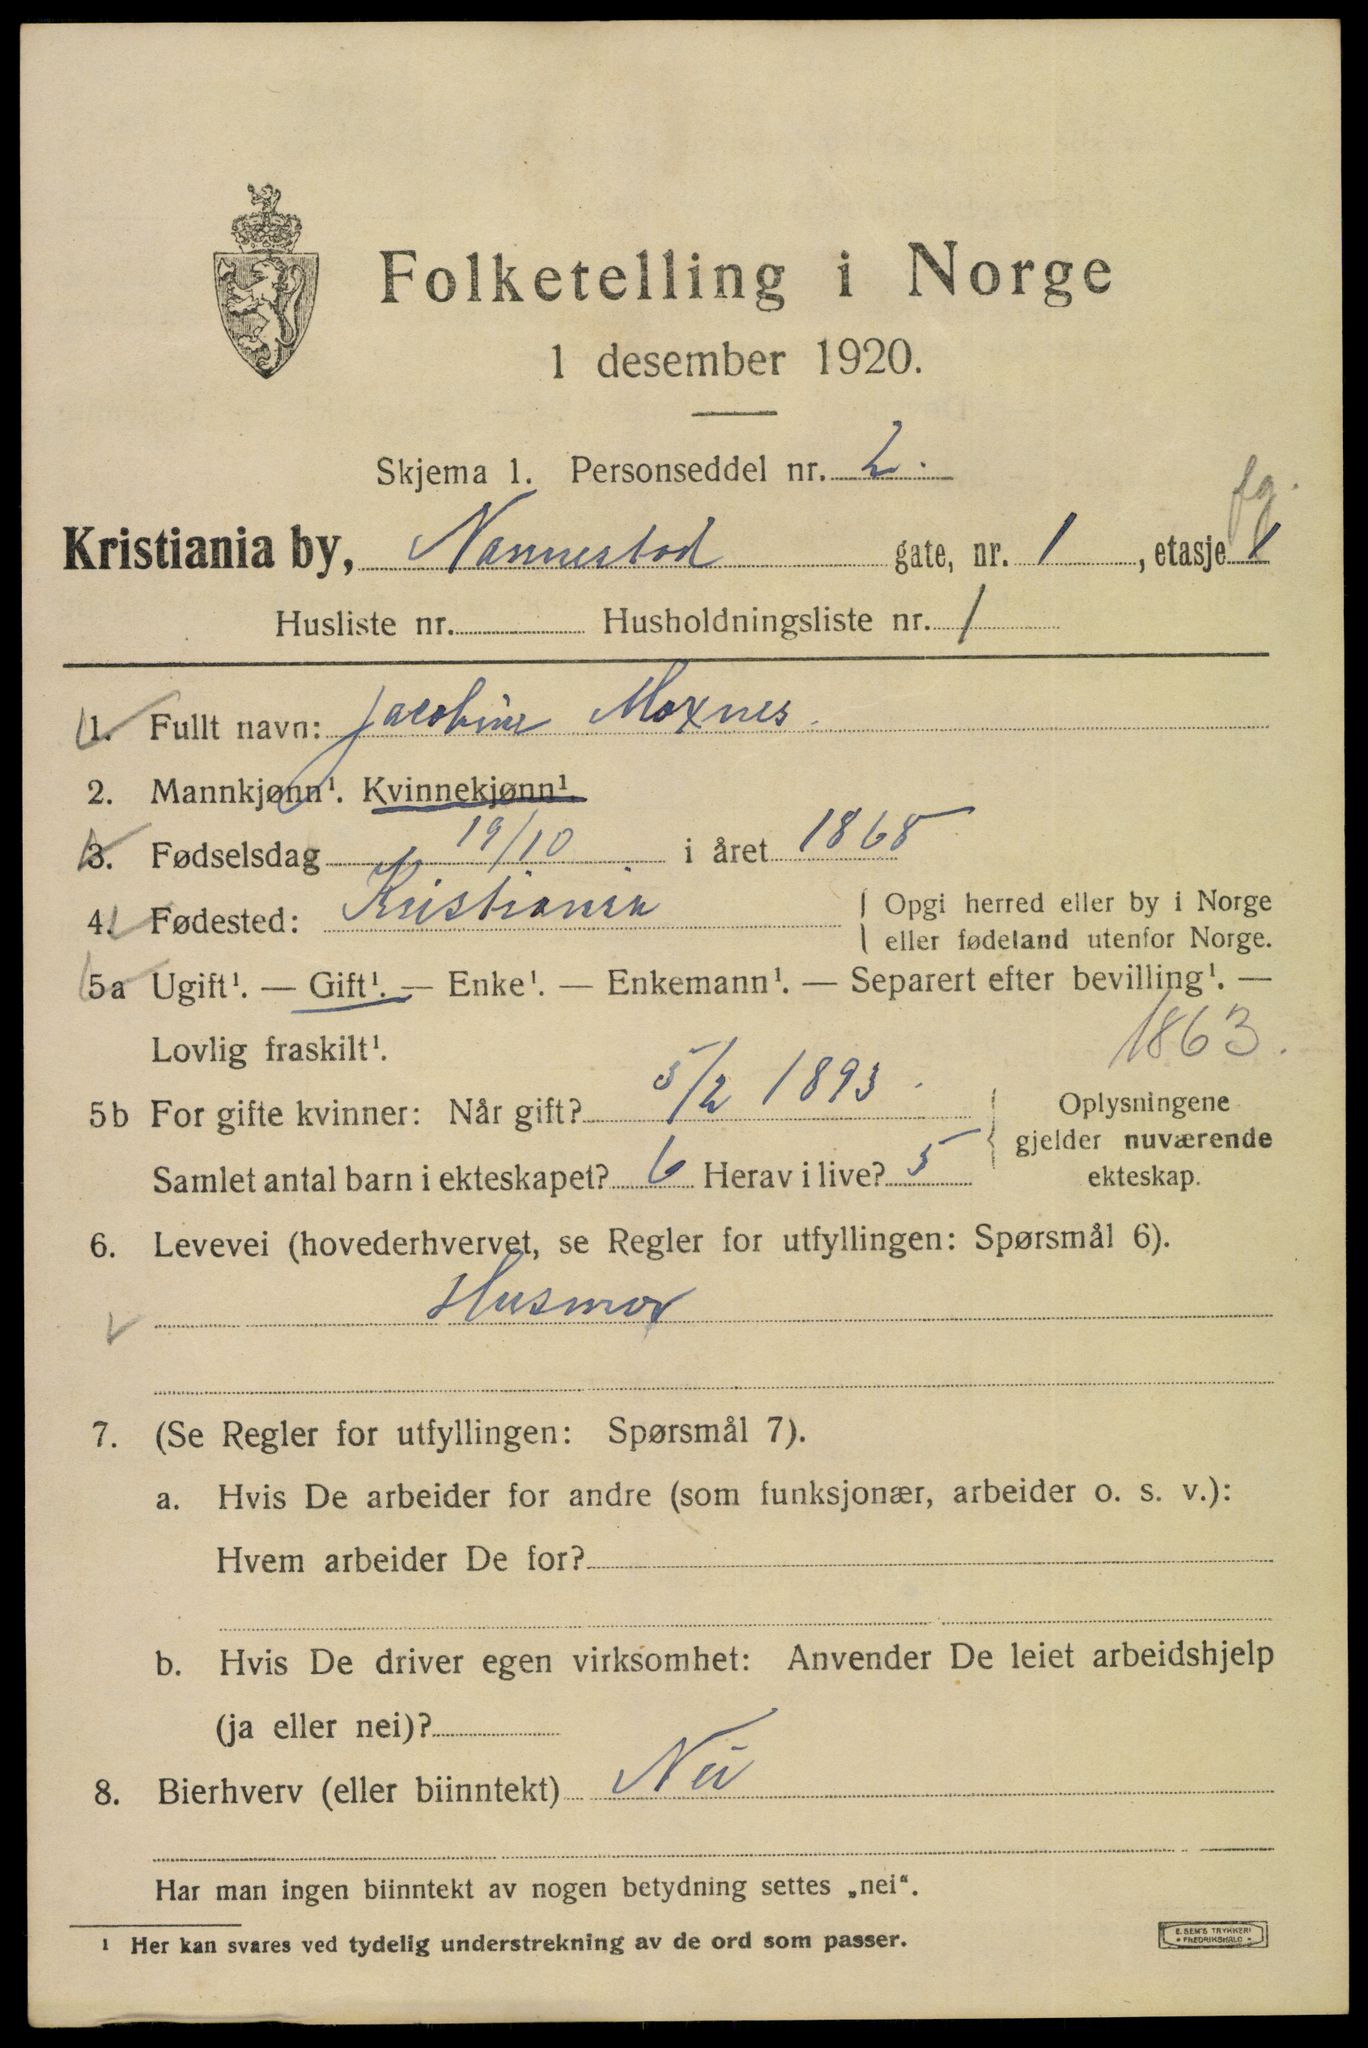 Folketelling i Norge
1 desember 1920.
Skjema 1. Personseddel nr. 2.
fg.
Kristiania by, Nannestad gate, nr. 1, etasje 1
Husliste nr. Husholdningsliste nr. 1
1. Fullt navn: Jacobine Moxnes.
2. Mannkjønn¹. Kvinnekjønn¹.
3. Fødselsdag 19/10 i året 1868
4. Fødested: Kristiania { Opgi herred eller by i Norge
eller fødeland utenfor Norge.
5a Ugift¹. — Gift¹. — Enke¹. — Enkemann¹. — Separert efter bevilling¹. —
Lovlig fraskilt¹. 1863.
5b For gifte kvinner: Når gift? 5/2 1893. { Oplysningene
gjelder nuværende
Samlet antal barn i ekteskapet? 6 Herav i live? 5 ekteskap.
6. Levevei (hovederhvervet, se Regler for utfyllingen: Spørsmål 6).
Husmor
7. (Se Regler for utfyllingen: Spørsmål 7).
a. Hvis De arbeider for andre (som funksjonær, arbeider o. s. v.):
Hvem arbeider De for?
b. Hvis De driver egen virksomhet: Anvender De leiet arbeidshjelp
(ja eller nei)?
8. Bierhverv (eller biinntekt) Nei
Har man ingen biinntekt av nogen betydning settes „nei“.
¹ Her kan svares ved tydelig understrekning av de ord som passer.
E. SEM'S TRYKKERI
• FREDRIKSHALD •